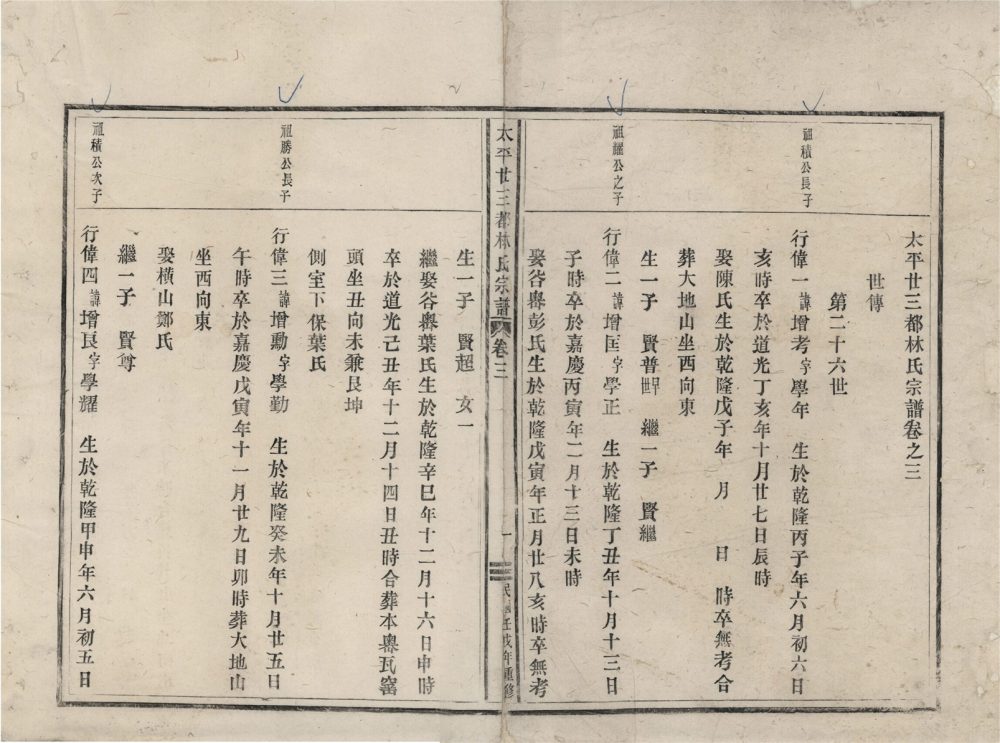 太平廿三都林氏宗譜卷之三
世傳
第二十六世
祖積公長子
行偉一諱增考字學年 生於乾隆丙子年六月初六日
亥時卒於道光丁亥年十月廿七日辰時
娶陳氏生於乾隆戊子年 月 日 時卒無考合
葬大地山坐西向東
生一子 賢普 繼一子 賢繼
祖耀公之子
行偉二諱增匡字學正 生於乾隆丁丑年十月十三日
子時卒於嘉慶丙寅年二月十三日未時
娶谷嶴彭氏生於乾隆戊寅年正月廿八亥時卒無考
太平廿三都林氏宗譜 卷三 一 民國壬戌年重修
生一子 賢超 女一
繼娶谷嶴葉氏生於乾隆辛巳年十二月十六日申時
卒於道光己丑年十二月十四日丑時合葬本嶴瓦窰
頭坐丑向未兼艮坤
側室下保葉氏
祖勝公長子
行偉三諱增勳字學勤 生於乾隆癸未年十月廿五日
午時卒於嘉慶戊寅年十一月廿九日卯時葬大地山
坐西向東
娶橫山鄭氏
繼一子 賢尊
祖積公次子
行偉四諱增良字學耀 生於乾隆甲申年六月初五日